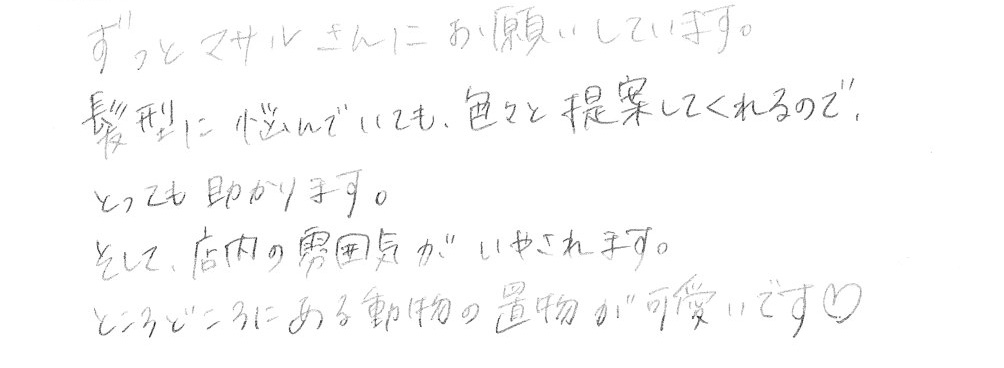 ずっとマサルさんにお願いしています。
髪型に悩んでいても、色々と提案してくれるので、
とっても助かります。
そして、店内の雰囲気がいやされます。
ところどころにある動物の置物が可愛いです♡